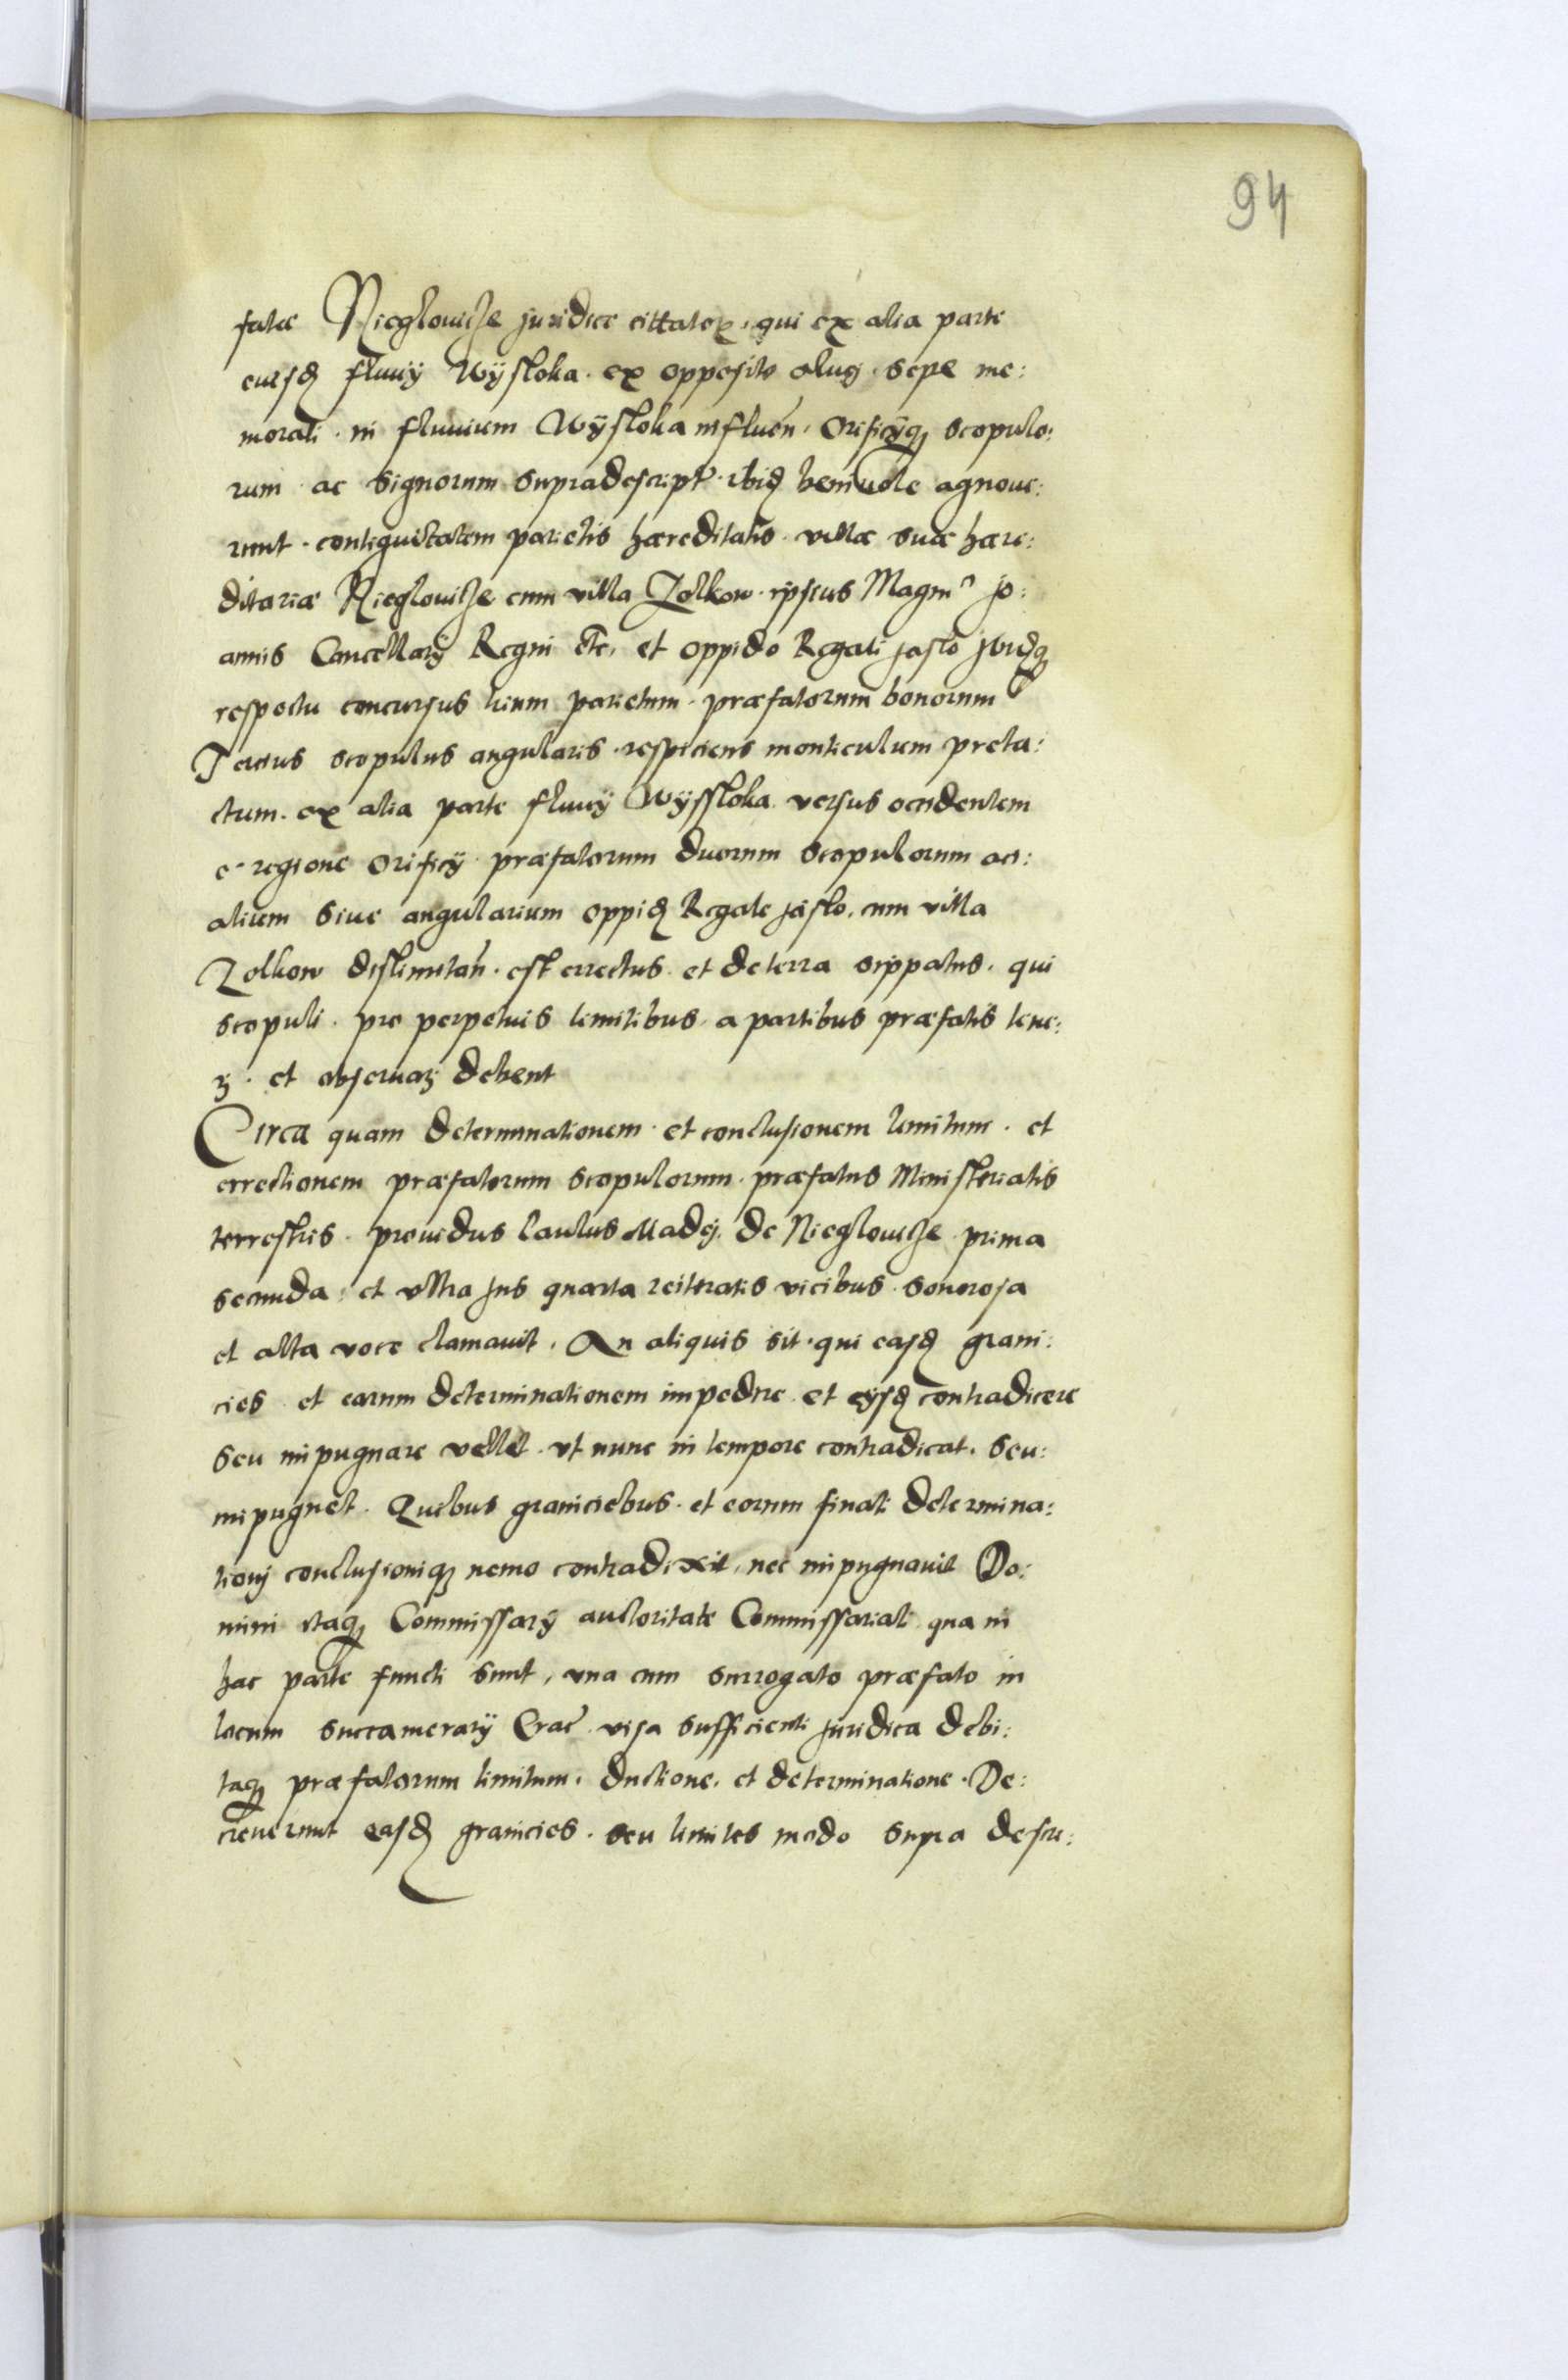 94
fatæ Nieglouicze juridice cittator, qui ex alia parte
eiusd fluuÿ Wÿsloka. ex opposito aluej. sepe me:
morati. in fluuium Wÿsloka influen̄. Orificÿq scopulo:
rum ac signorum supradescript. ibid beniuole agnoue:
runt. contiguitatem parietis hæreditatis. villæ suæ hære:
ditariæ Nieglouicze cum villa Zolkow. ipsius Magnci Jo:
annis Cancellarÿ Regni etc, et oppido Regali Jaslo
respectu concursus trium parietum. præfatorum bonorum
Tercius scopulus angularis. respiciens monticulum preta:
ctum. ex alia parte fluuÿ Wÿssloka versus occidentem
e regione orificÿ. præfatorum duorum scopulorum aci:
alium siue angularium oppid Regale Jaslo, cum villa
Zolkow distimitan̄. est errectus et de terra sippatus. qui
scopuli. pro perpetuis limitibus. a partibus præfatis tene:
ꝫ. et obseruaꝫ debent
Circa quam determinationem. et conclusionem limitum. et
errectionem præfatorum scopulorum. præfatus Ministerialis
terrestris. prouidus Paulus Madej. de Nieglouicze prima
secunda. et vltra jus quarta reiteratis vicibus. sonorosa
et alta voce clamauit. An aliquis sit. qui easd grani:
cies et earum determinationem impedire et eÿsd contradicere
seu impugnare vellet. vt nunc in tempore contradicat. seu:
impugnet. Quibus graniciebus. et eorum finali determina:
tionj conclusioniq nemo contradixit, nec impugnauit Do:
mini itaq Commissarÿ auctoritate Commissariali qua in
hac parte functi sunt, vna cum surrogato præfato in
locum succamerarÿ Crac. visa sufficienti juridica debi:
taq præfatorum limitum. ductione. et determinatione. De:
creuerunt easd granicies. seu limites modo supra descri: